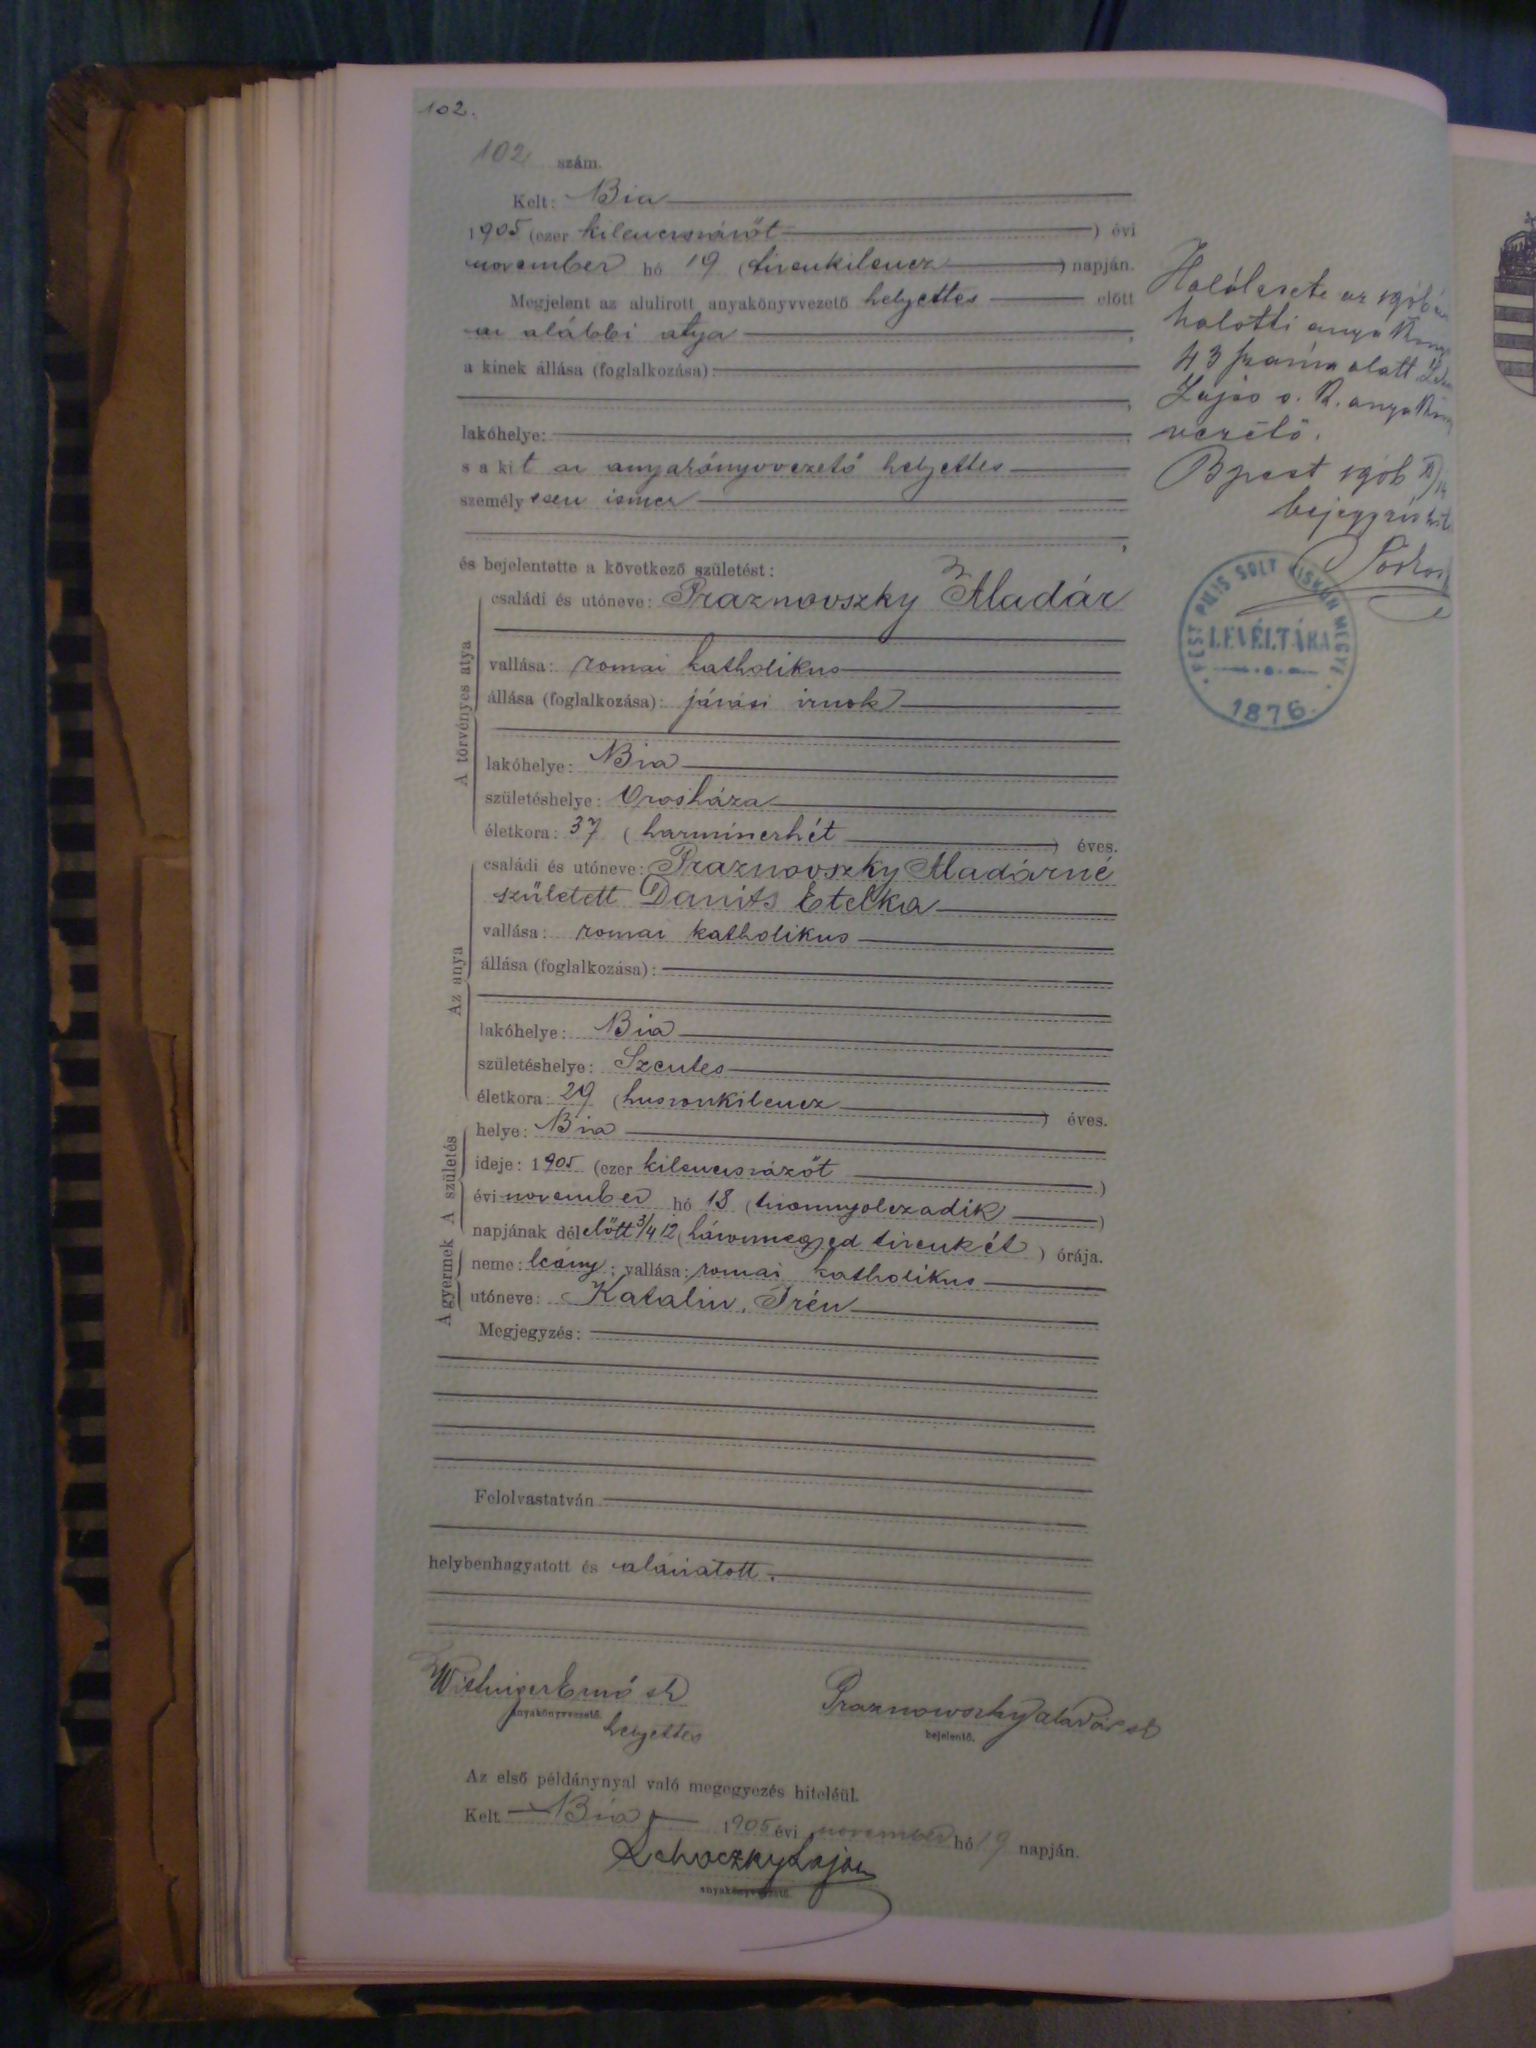 102.
102 szám.
Kelt: Bia
1905 (ezer kilencszázöt) évi
november hó 19 (tizenkilencz) napján.
Megjelent az alulirott anyakönyvvezető helyettes előtt
az alábbi atya,
a kinek állása (foglalkozása):
lakóhelye:
s a kit az anyakönyvvezető helyettes
személyesen ismer
és bejelentette a következő születést:
A törvényes atya
családi és utóneve: Praznovszky Aladár
vallása: romai katholikus
állása (foglalkozása): járási irnok
lakóhelye: Bia
születéshelye: Orosháza
életkora: 37 (harminczhét) éves.
Az anya
családi és utóneve: Praznovszky Aladárné
született Danits Etelka
vallása: romai katholikus
állása (foglalkozása):
lakóhelye: Bia
születéshelye: Szentes
életkora: 29 (huszonkilencz) éves.
A születés
helye: Bia
ideje: 1905 (ezer kilenczszázöt)
évi november hó 18 (tizennyolczadik)
napjának délelőtt 3/4 12 (háromnegyed tizenkét) órája.
A gyermek
neme: leány; vallása: romai katholikus
utóneve: Katalin, Irén
Megjegyzés:
Felolvastatván
helybenhagyatott és aláiratott.
Ernő sk
anyakönyvvezető.
helyettes
Praznowszky Aladár sk
bejelentő.
Az első példánynyal való megegyezés hiteléül.
Kelt Bia 1905 évi november hó 19 napján.
Lehoczky Lajos
anyakönyvvezető.
Halálesete az 1906
halotti anyakönyv
43 száma alatt
Lajos s. k. anyakönyv
vezető.
Bpest 1906
bejegyzés
PEST PILIS SOLT KISKUN MEGYE
LEVÉLTÁRA
1876